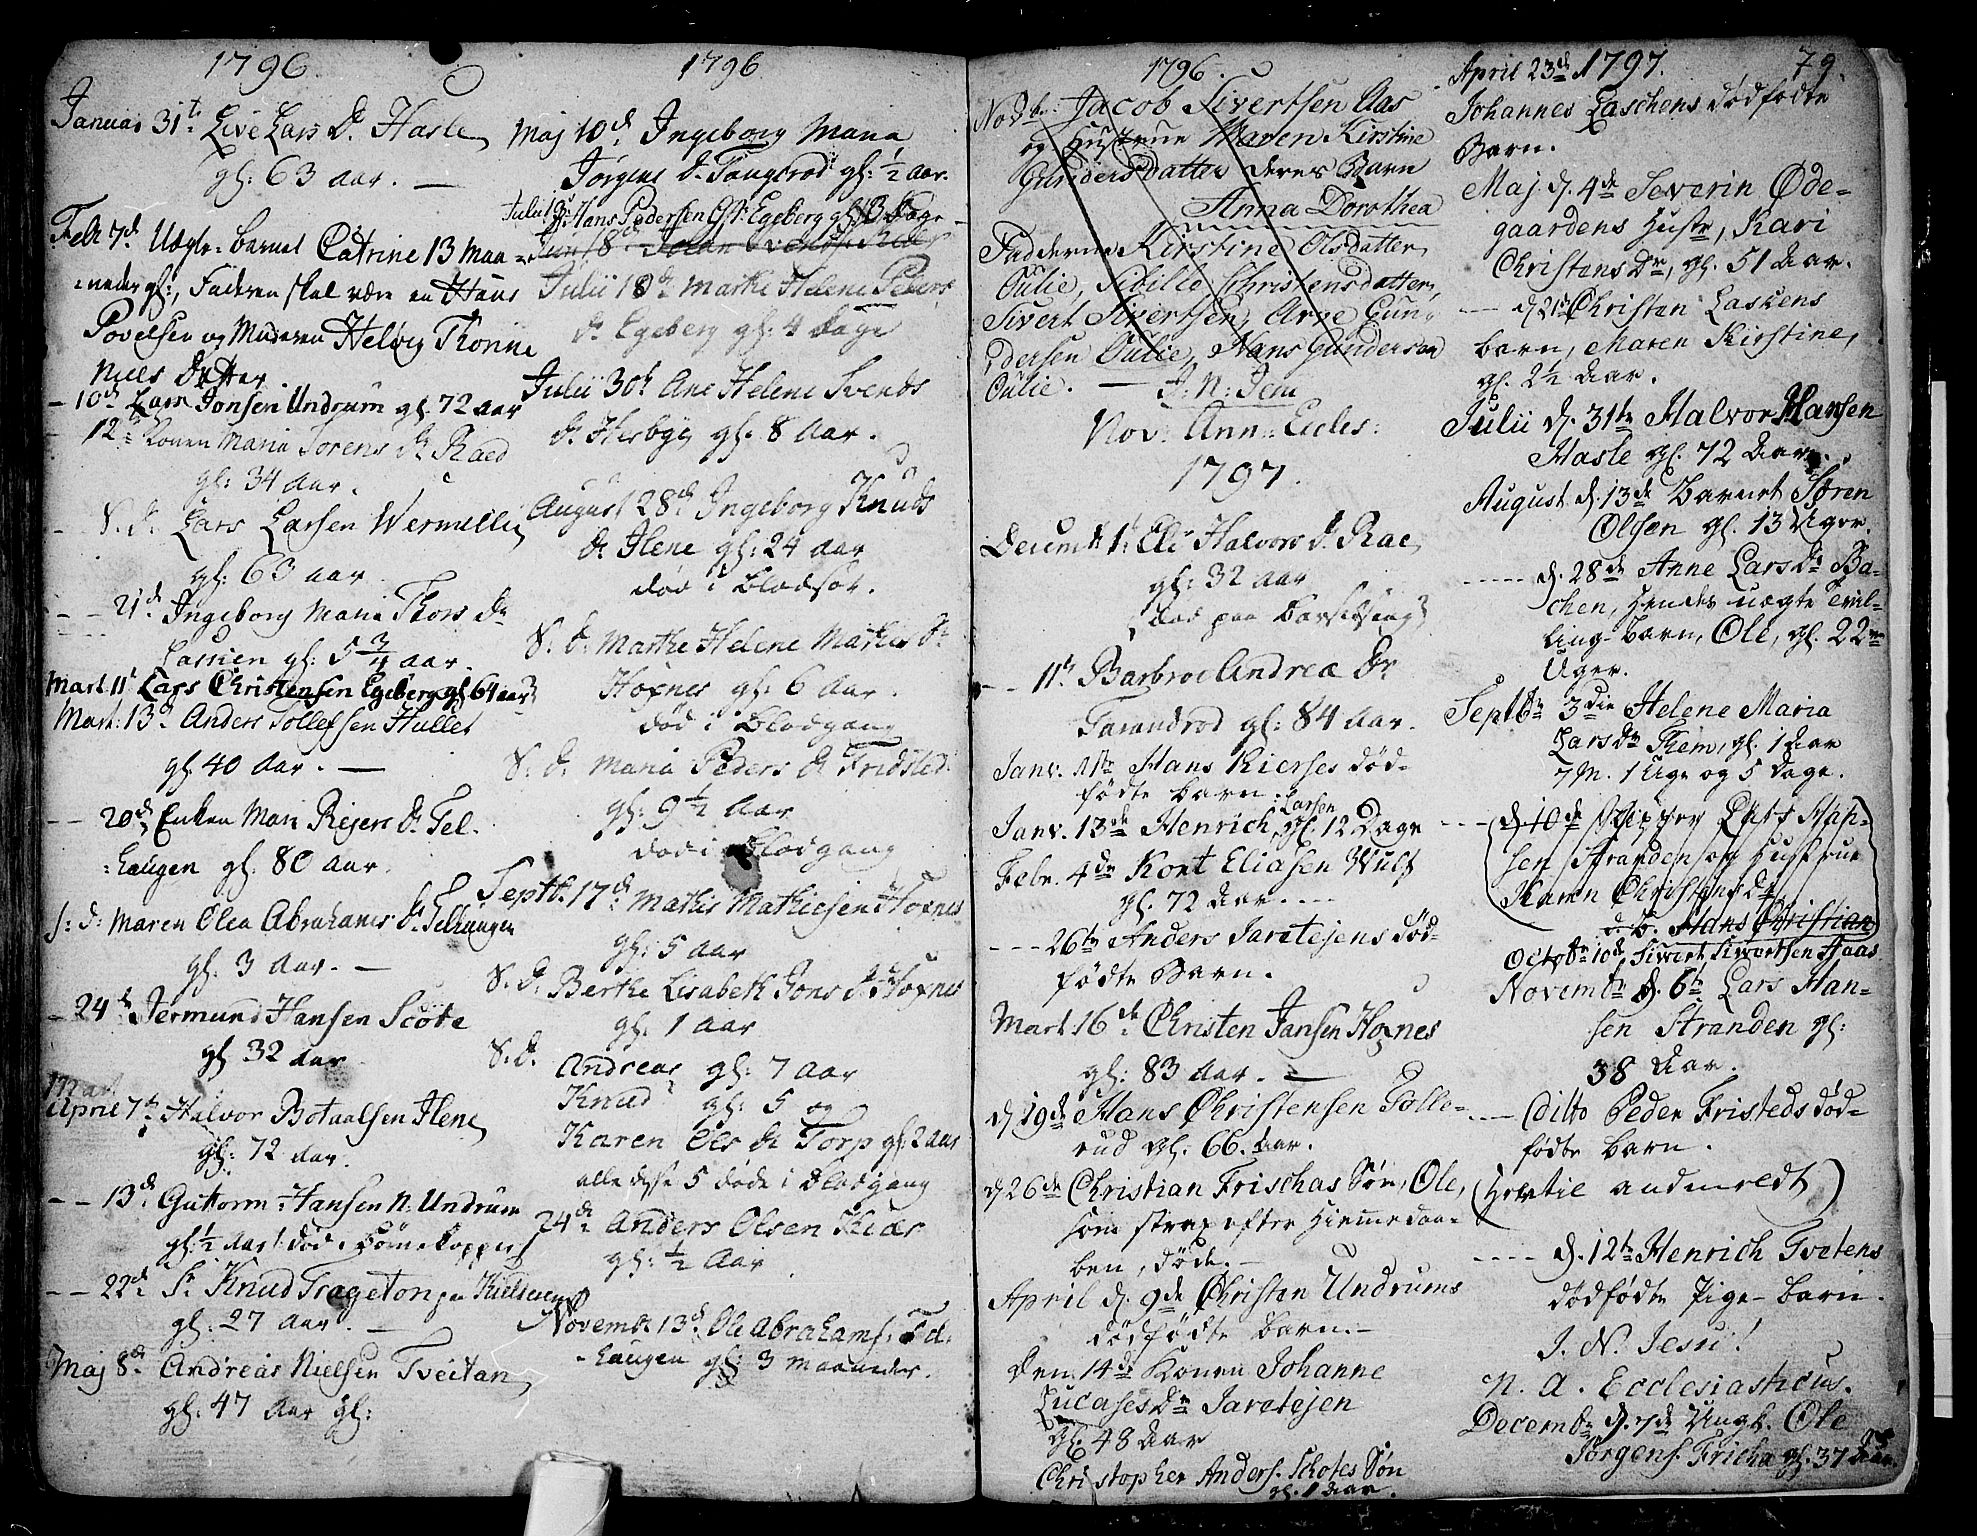 1796
Januar 31te Live Lars Dr. Hasle
gl: 63 aar. —
Febr 7d Uægte barnet Catrine 13 maa=
=neder gl:, Faderen skal være en Hans
Povelsen og Moderen Helvig Thonne
Niels Datter.
— 10d Lars Jonsen Undrum gl. 72 aar
— 12te Konen Maria Sorens Dr Raed
gl: 34 aar.
— S. d. Lars Larsen Wermelli
gl: 63 aar.
— — 21d Ingeborg Maria Thors Dr
Lassien gl: 5 3/4 aar.
Mart. 11t Lars Christensen Egeberg gl 64 aar
Mart: 13d Anders Tollefsen Hullet
gl. 40 Aar. —
— — 20d Enken Mari Rejers Dr Tel.
=haugen gl: 80 aar.
S: d: Maren Olea Abrahams Dr. Telhaugen
gl. 3 Aar. —
— 24d Jermund Hansen Scöte
gl 32 aar
Mart
April 7de Halvor Botaalsen Ilene
gl: 72 aar.
— — 13d Guttorm Hansen N: Undrum
gl: 1/2 Aar død i Börnekopper
— — 22d Sr Knud Trageton paa
gl: 27 aar. —
Maj 8d Andreas Nielsen Tveitan
gl: 47 aar gl:
1796
Maj 10d Ingeborg Maria
Jørgens Dr. Taugsrod gl: 1/2 aar.
Julii 3 Hans Pedersen Egeberg gl 13 Dage
Julii 18de Marthe Helene Peders
dr Egeberg gl: 4 Dage
Julii 30te Ane Helene Svends
dr. Hesbye gl: 8 Aar.
August 28d Ingeborg Knuds
dr Ilene gl: 24 aar
død i Blodsot.
S. d: Marthe Helene Mathis Dr
Hoxnes gl: 6 Aar.
død i Blodgang
S. d: Maria Peders dr Fridsted.
gl: 9 1/2 Aar
død i Blodgang
Septbr. 17d Mathis Mathiesen Hoxnes
gl: 5 aar
S. d. Berthe Lisabeth Jons dr Hoxnes
gl: 1 aar
S. d. Andreas gl: 7 Aar
Knud gl: 5 og
Karen Ols dr Torp gl: 2 aar
alle disse 5 døde i Blodgang
24d Anders Olsen Kiær
gl: 1/2 Aar
Novembr 13d Ole Abrahams: Tel.
=haugen gl: 3 maaneder.
1796.
Novbr: Jacob Sivertsen Aas
og Hustrue Maren Kirstine
Gunders Datter deres Barn
Anna Dorothea
Fadderne Kirstine Olsdatter
Oulie, Sibille Christensdatter,
Sivert Sivertsen, Arne Gun=
dersen Oulie, Hans Gundersen
Oulie. — J. N. Jesu
Nov: Ann: Eccles:
1797.
Decembr 1: Eli Halvors dr. Rae
gl: 32 aar
død paa Barselseng
— — 11te Barbroe Andrea Dr
Tarandrød gl: 84 Aar.
Janv. 1ste Hans Kierses død=
fødte barn.
Janv. 13de Henrich Larsen, gl. 12 Dage
Febr. 4de Kort Eliasen Wulf
gl. 72 Aar. ---
--- 26te Anders Jaretejens død=
fødte Barn.
Mart. 16de Christen Jansen Hoxnes
gl: 83 Aar. —
d. 19de Hans Christensen Tolle=
rud gl. 66. Aar.
d 26de Christian Frischas Søn, Ole,
som strax efter Hiemmedaa=
ben, døde. —
April d. 9de Christen Undrums
dødfødte Barn. —
Den 14de Konen Johanne
Lucases Dr Jaretejen
gl. 48 Aar
Christopher Anders. Skotes Søn
gl. 1 Aar.
79.
April 23de 1797.
Johannes Laschens dødfødte
Barn.
Maj d. 4de Severin Øde=
gaardens Hustr, Kari
Christens Dr, gl. 51 Aar.
--- d. 21de Christen Laskens
barn, Maren Kirstine,
gl. 2 1/2 Aar.
Julii d. 31te Halvor Hansen
Hasle gl. 72 Aar.
August d. 13de Barnet Søren
Olsen gl. 13 Uger.
----- d. 28de Anne Lars Dr Ba=
chen, Hendes uægte Tvil=
ling-Barn, Ole, gl. 22
Uger.
Septbr 3die Helene Maria
Lars Dr Them, gl. 1 Aar
7 M. 1 Uge og 5 Dage.
--- d. 10de Lars Han=
sen Stranden og Hustrue
Karen Christens Dr
d. b. Hans Christian
Octobr 10de Siwert Siwertsen Haas
Novembr d. 6te Lars Han=
sen Stranden gl:
38 Aar.
--- Ditto Peder Fristeds død=
fødte barn.
(Hertil andmeldt)
---- d. 12te Henrich Tvetens
dødfødte Pige-barn.
J. N. Jesu!
N. A. Ecclesiasticus.
Decembr d. 7de Ungk. Ole
Jørgens. Fricha gl. 37 Aar